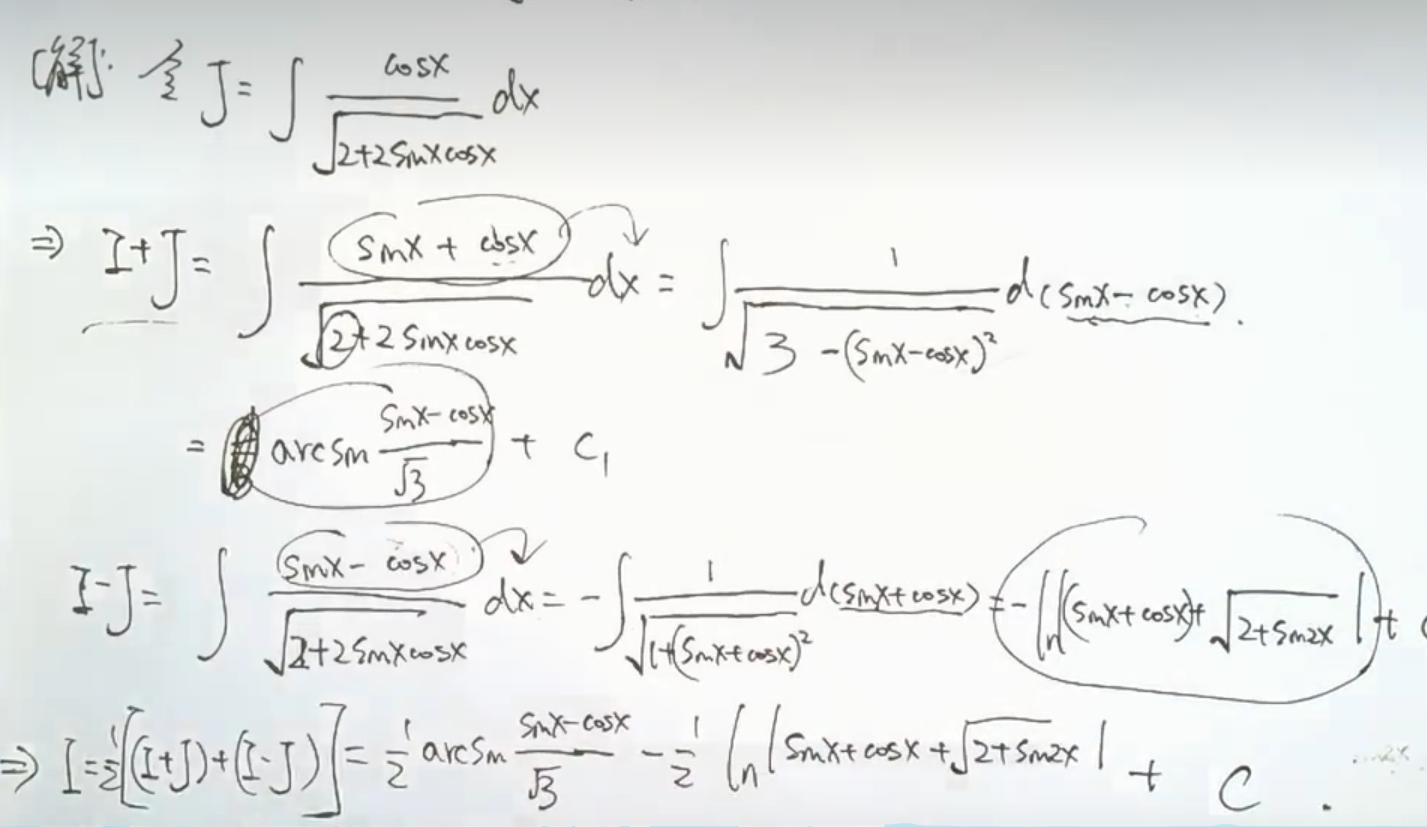 [解]: 令 J = ∫ cosx / √(2+2sinxcosx) dx
⇒ I+J = ∫ (sinx + cosx) / √(2+2sinxcosx) dx = ∫ 1 / √(3-(sinx-cosx)²) d(sinx-cosx).
= arcsin (sinx-cosx)/√3 + C₁
I-J = ∫ (sinx - cosx) / √(2+2sinxcosx) dx = -∫ 1 / √(1+(sinx+cosx)²) d(sinx+cosx) = -ln|(sinx+cosx)+√(2+sin2x)| +
⇒ I = ½[(I+J)+(I-J)] = ½ arcsin (sinx-cosx)/√3 - ½ ln|sinx+cosx+√(2+sin2x)| + C.